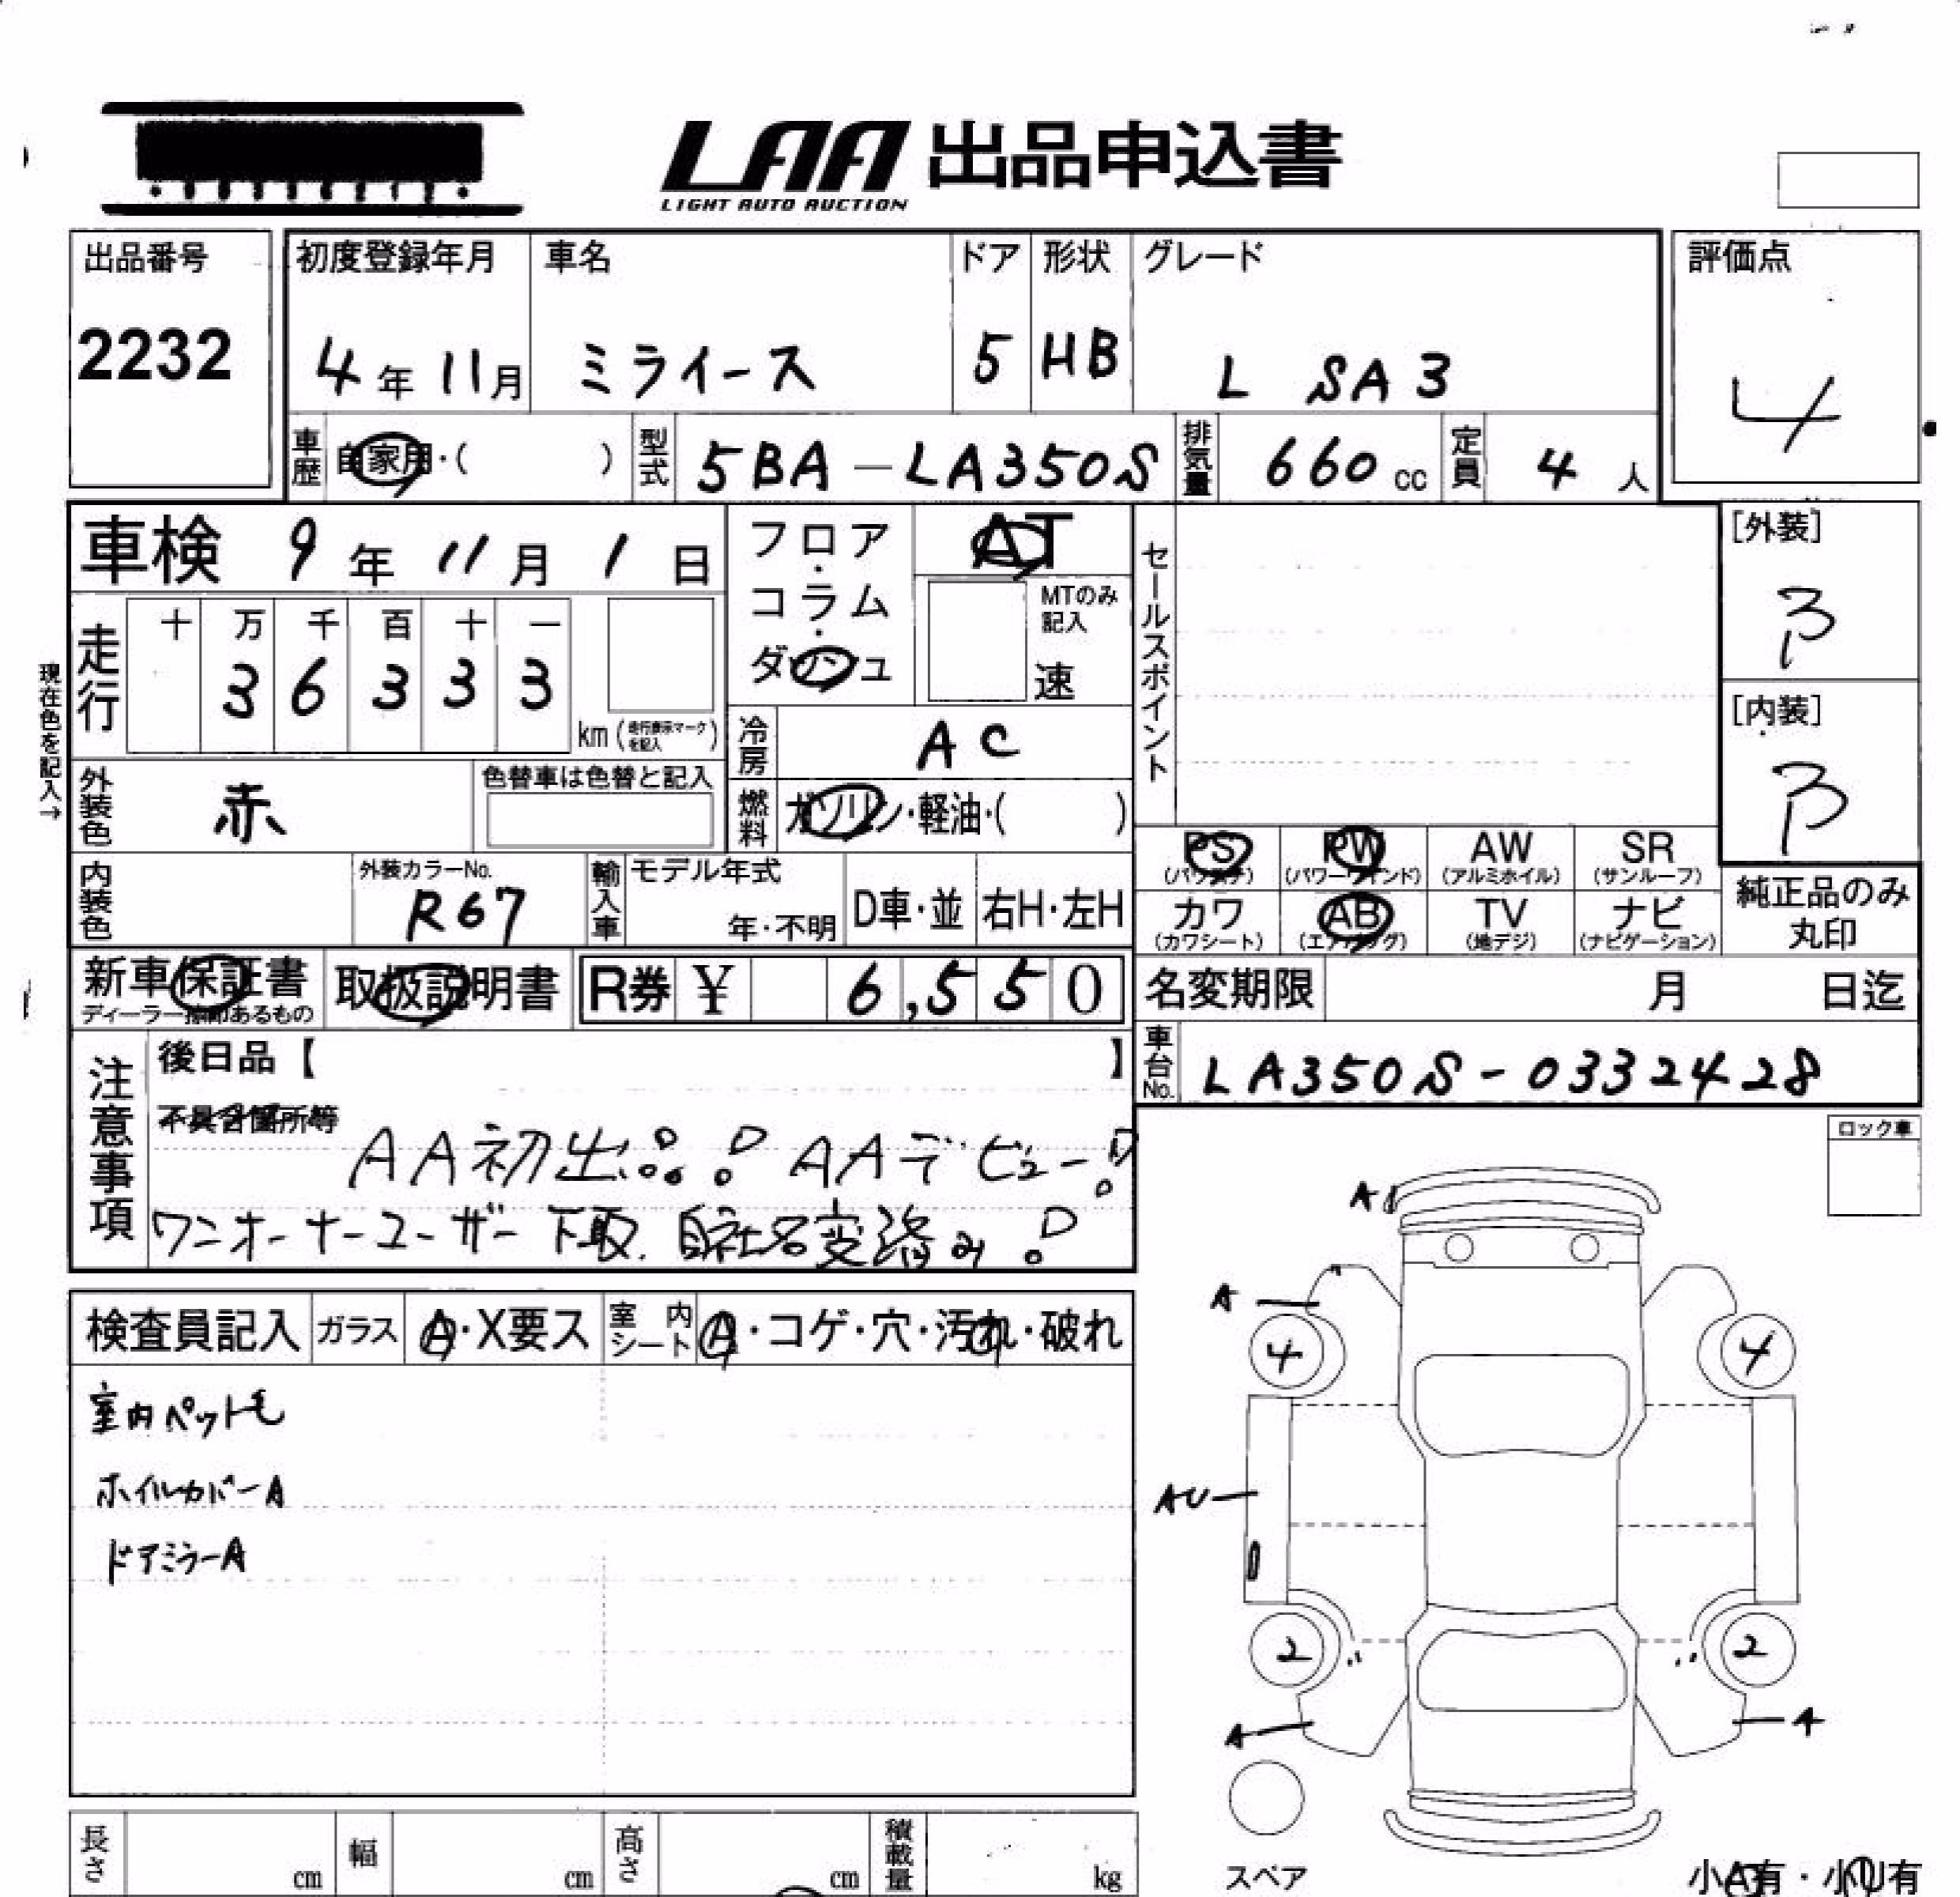 LAA 出品申込書
LIGHT AUTO AUCTION
出品番号 初度登録年月 車名 ドア 形状 グレード 評価点
2232 4年11月 ミライース 5 HB L SA3 4
車歴 自家用・( ) 型式 5BA-LA350S 排気量 660cc 定員 4人
車検 9年11月1日 フロア・コラム・ダッシュ AT セールスポイント [外装]
MTのみ記入 速 B
現在色を記入→
走行 十 万 千 百 十 一 [内装]
3 6 3 3 3 km (走行表示マークを記入) B
冷房 AC
外装色 赤 色替車は色替と記入 燃料 ガソリン・軽油・( )
PS (パワステ) PW (パワーウインド) AW (アルミホイル) SR (サンルーフ) 純正品のみ丸印
内装色 外装カラーNo. R67 輸入車 モデル年式 年・不明 D車・並 右H・左H
カワ (カワシート) AB (エアバッグ) TV (地デジ) ナビ (ナビゲーション)
新車保証書 取扱説明書 R券 ¥ 6,550 名変期限 月 日迄
ディーラー捺印あるもの
注意事項 後日品【 】 車台No. LA350S-0332428
不具合箇所等
AA初出品! AAデビュー!
ワンオーナーユーザー下取. 自社名変済み!
ロック車
検査員記入 ガラス A・X要ス 室内シート A・コゲ・穴・汚れ・破れ
室内ペット毛
ホイルカバーA
ドアミラーA
A
A
4 4
AU
2 2
A A
スペア
長さ cm 幅 cm 高さ cm 積載量 kg
小A有・小U有